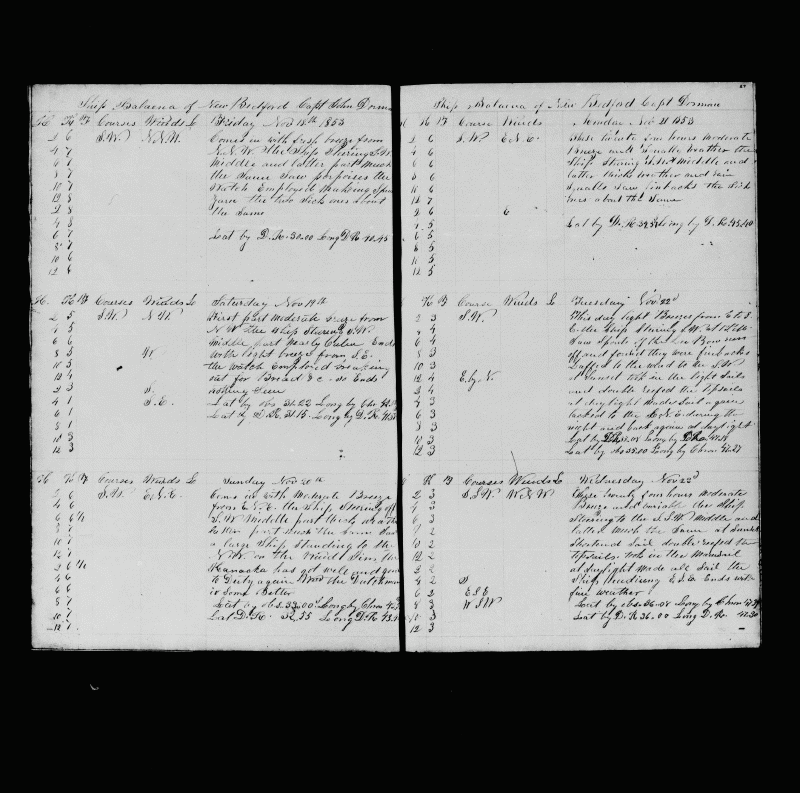 Ship Balaena of New Bedford Capt John Dorman
H. K F Courses Winds L Friday Nov 18th 1853
2 6 S.W. N.N.W. Comes in with fresh breeze from
4 7 N.N.W. the Ship Steering S.W.
6 7 Middle and latter part Much
8 7 the Same Saw porpoises the
10 7 Watch Employed Making Spun
12 8 Yarn the two Sick ones about
2 8 the Same
4 8
6 7 Lat by D.R. 30.00 Long D R 40.45
8 7
10 6
12 6
H. K F Courses Winds L Saturday Nov 19th
2 5 S.W. N.W. First part Moderate breeze from
4 5 N.W. the Ship Steering S.W.
6 6 Middle part Nearly Calm Ends
8 3 W with light breeze from S.E.
10 3 the watch Employed breaking
12 4 out for Bread &c. so Ends
2 3 S.
4 1 S.E. Lat by obs 31.22 Long by Chr
6 1 Lat by D R. 31.15 Long by D.R.
8 1
10 3
12 3
H K F Courses Winds L Sunday Nov 20th
2 6 S.W. E.N.E. Comes in with Moderate Breeze
4 6 from E.N.E. the Ship Steering off
6 6 ½ S.W. Middle part thick weather
8 7 latter part Much the Same Saw
10 7 a large Ship Standing to the
12 7 N.W.
2 6 ½ Kanacka has got well and gone
4 6 to Duty again
6 7 is Some better
8 7 Lat by obs. 33.00 Long by Chro
10 7 Lat D.R. Long D.R
12 7
Ship Balaena of New Bedford Capt Dorman
H K F Course Winds Monday Nov 21 1853
2 6 S.W. E.N.E. These twenty four hours Moderate
4 6 Breeze and weather the
6 6 Ship Steering S.W. Middle and
8 6 latter thick weather and rain
10 6 Squalls Saw finbacks the Sick
12 7 ones about the Same
2 6 E
4 5 Lat by D.R. Long by D.R.
6 5
8 5
10 5
12 5
H K F Course Winds L Tuesday Nov 22d
2 3 S.W. This day light Breezes from E to S.
2 4 the Ship Steering S.W.
6 4 Saw Spouts off the Lee Bow run
8 3 off and found they were finbacks
10 3 Luffed to the wind to the
12 4 E. by N. at Sunset took in the light Sails
2 4 and double reefed the topsails
4 4 at daylight Made Sail again
6 3 tacked to the E.N.E. during the
8 3 night and back again at daylight
10 3 Lat by DR Long by
12 3 Lat by obs 35.00 Long by Chron
H K F Courses Winds L Wednesday Nov 23d
2 3 S.S.W. W.N.W. These twenty four hours Moderate
4 3 Breeze and variable the Ship
6 3 Steering to the S.S.W. Middle and
8 2 latter Much the Same at Sunset
10 2 Shortened Sail double reefed the
12 2 topsails took in the Mainsail
2 2 at daylight Made all Sail the
4 2 S Ship heading E.S.E. Ends with
6 2 E S E fine weather
8 3 W S W Lat by obs. 36.08 Long by Chron
10 3 Lat by D.R 36.00 Long D.R.
12 3